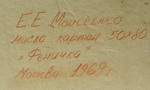 Е.Е Моисеенко
масло картон 50×80
"Феничка"
Москва 1969г